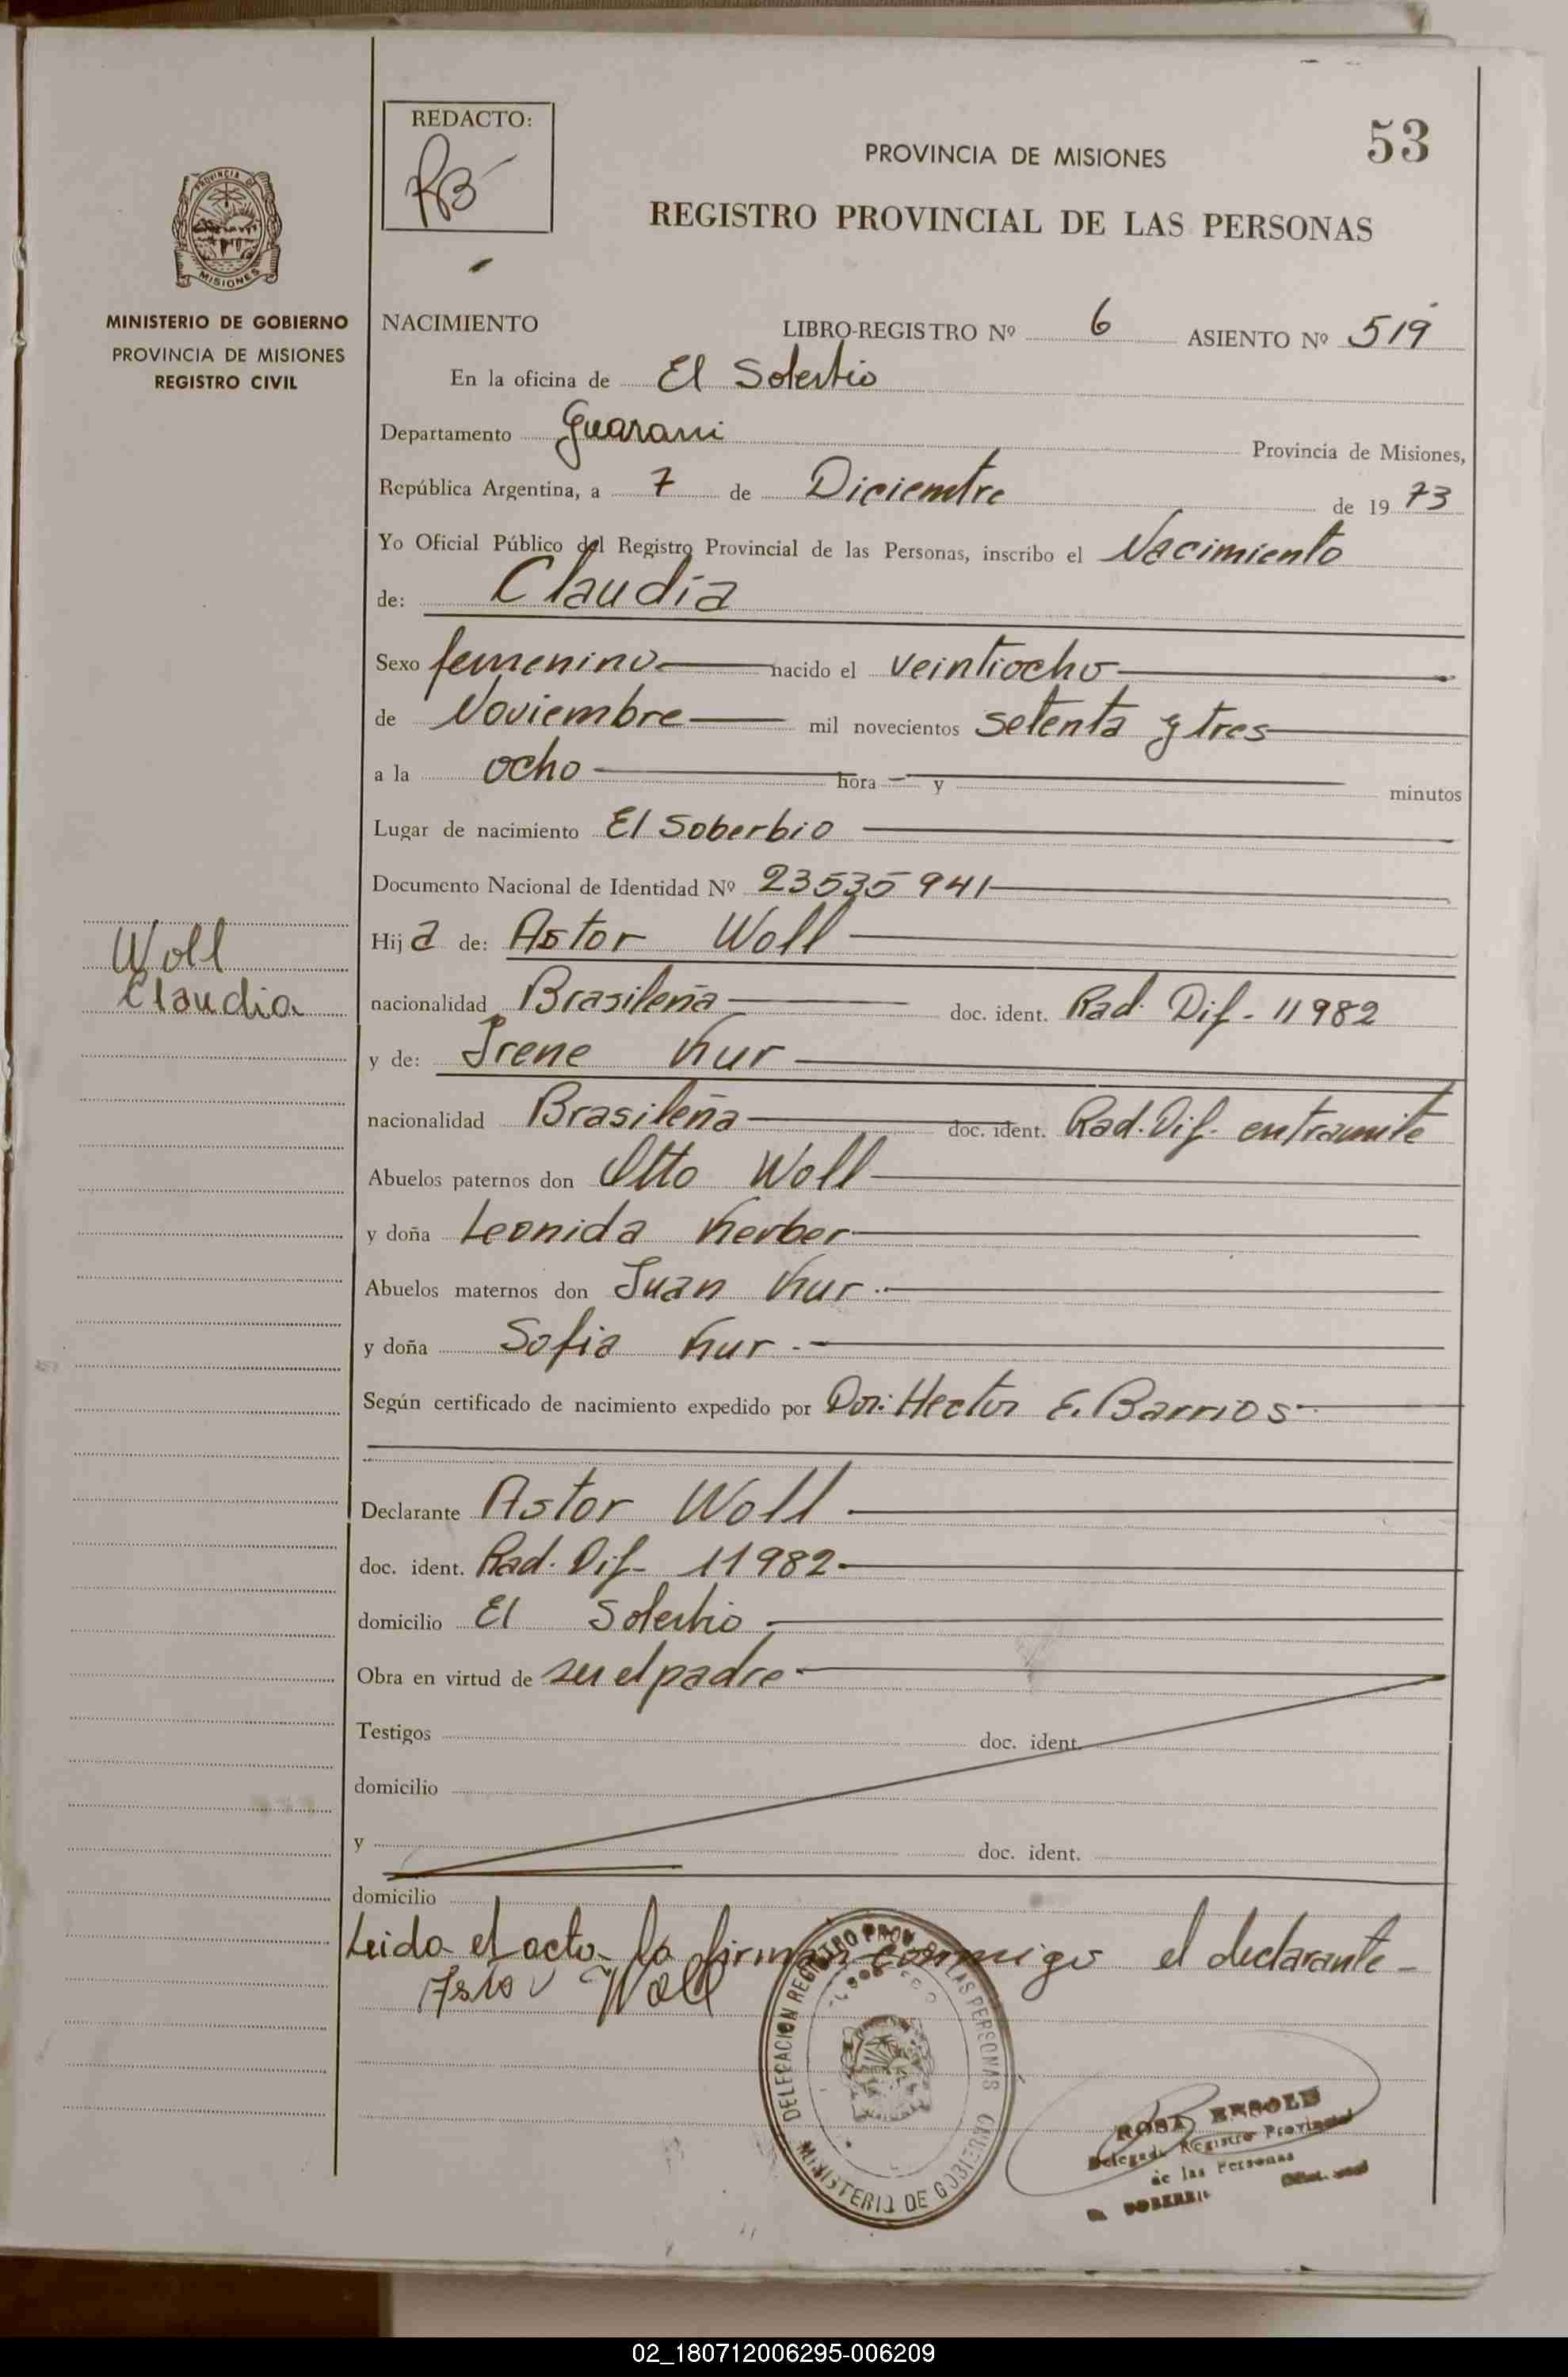 53
REDACTO:
RB
PROVINCIA DE MISIONES
REGISTRO PROVINCIAL DE LAS PERSONAS
PROVINCIA DE
MISIONES
MINISTERIO DE GOBIERNO
PROVINCIA DE MISIONES
REGISTRO CIVIL
NACIMIENTO LIBRO-REGISTRO Nº 6 ASIENTO Nº 519
En la oficina de El Soberbio
Departamento Guarani Provincia de Misiones,
República Argentina, a 7 de Diciembre de 1973
Yo Oficial Público del Registro Provincial de las Personas, inscribo el Nacimiento
de: Claudia
Sexo femenino nacido el veintiocho
de Noviembre mil novecientos setenta y tres
a la ocho hora — y minutos
Lugar de nacimiento El Soberbio
Documento Nacional de Identidad Nº 23535941
Woll
Claudia
Hija de: Astor Woll
nacionalidad Brasileña doc. ident. Rad. Dif. 11982
y de: Irene Kur
nacionalidad Brasileña doc. ident. Rad. Dif. en tramite
Abuelos paternos don Otto Woll
y doña Leonida Kerber
Abuelos maternos don Juan Kur
y doña Sofia Kur
Según certificado de nacimiento expedido por Dor: Hector E. Barrios
Declarante Astor Woll
doc. ident. Rad. Dif- 11982
domicilio El Soberbio
Obra en virtud de ser el padre
Testigos doc. ident.
domicilio
y doc. ident.
domicilio
Leida el acta la firman conmigo el declarante -
Astor Woll
DELEGACION REGISTRO PROV. DE LAS PERSONAS
MINISTERIO DE GOBIERNO
Delegada Registro Provincial
de las Personas
02_180712006295-006209